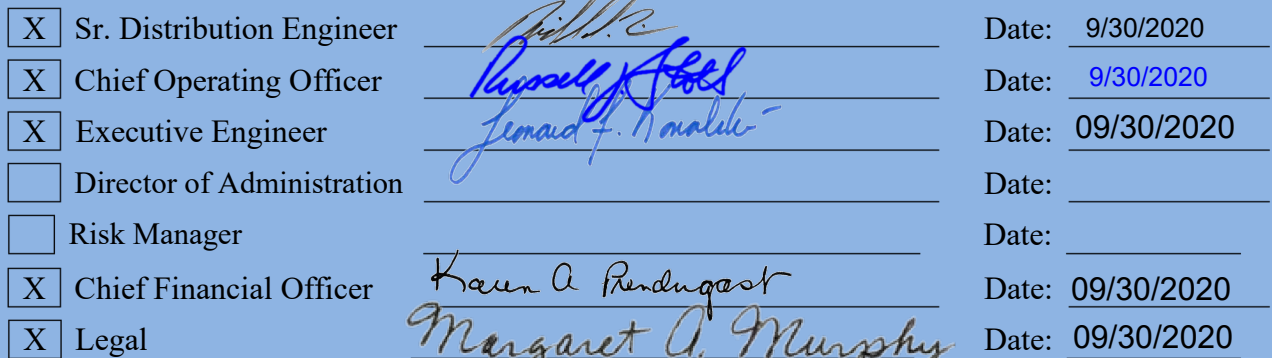 X Sr. Distribution Engineer Date: 9/30/2020
X Chief Operating Officer Russell J. Date: 9/30/2020
X Executive Engineer Leonard F. Date: 09/30/2020
Director of Administration Date:
Risk Manager Date:
X Chief Financial Officer Karen A Prendergast Date: 09/30/2020
X Legal Margaret A. Murphy Date: 09/30/2020